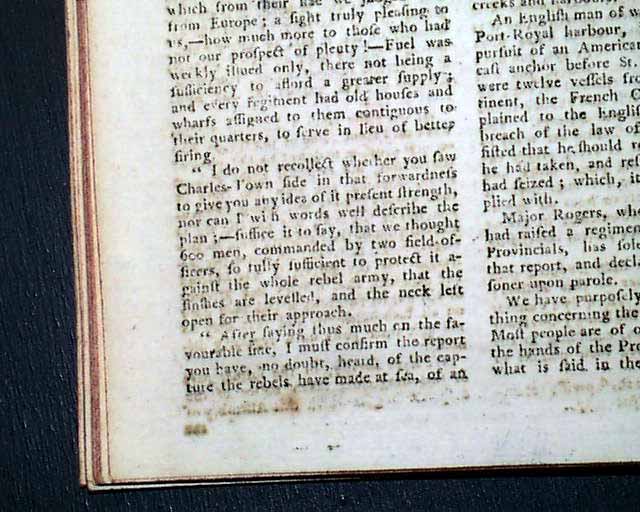 which from their
from Europe; a sight truly pleasing to
us,—how much more to those who had
not our prospect of plenty!—Fuel was
weekly issued only, there not being a
sufficiency to afford a greater supply;
and every regiment had old houses and
wharfs assigned to them contiguous to
their quarters, to serve in lieu of better
firing.
“ I do not recollect whether you saw
Charles-Town side in that forwardness
to give you any idea of it present strength,
nor can I with words well describe the
plan;—suffice it to say, that we thought
600 men, commanded by two field-of-
ficers, so fully sufficient to protect it a-
gainst the whole rebel army, that the
finshes are levelled, and the neck left
open for their approach.
“ After saying thus much on the fa-
vourable side, I must confirm the report
you have, no doubt, heard, of the cap-
ture the rebels have made at sea, of an
creeks and harbours,
An English man of w
Port-Royal harbour,
pursuit of an American
cast anchor before St.
were twelve vessels fro
tinent, the French C
plained to the Englis
breach of the law of
sisted that he should re
he had taken, and rel
had seized; which, it
plied with.
Major Rogers, wh
had raised a regimen
Provincials, has
that report, and decla
soner upon parole.
We have purposely
thing concerning the
Most people are of o
the hands of the Pro
what is said in the